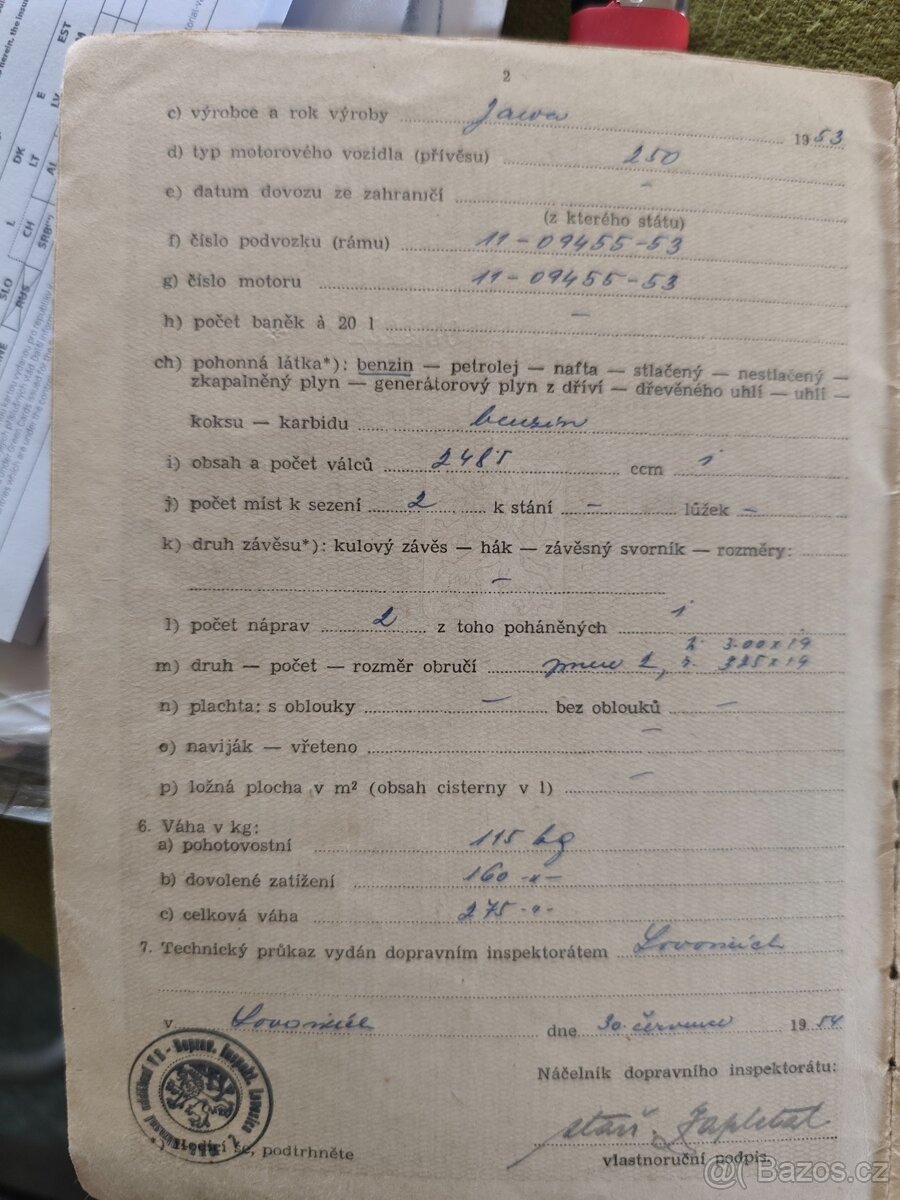 2
c) výrobce a rok výroby Jawa 1953
d) typ motorového vozidla (přívěsu) 250
e) datum dovozu ze zahraničí –
(z kterého státu)
f) číslo podvozku (rámu) 11-09455-53
g) číslo motoru 11-09455-53
h) počet baněk à 20 l –
ch) pohonná látka*): benzin — petrolej — nafta — stlačený — nestlačený —
zkapalněný plyn — generátorový plyn z dříví — dřevěného uhlí — uhlí —
koksu — karbidu benzin
i) obsah a počet válců 248 ccm 1
j) počet míst k sezení 2 k stání – lůžek –
k) druh závěsu*): kulový závěs — hák — závěsný svorník — rozměry:
–
l) počet náprav 2 z toho poháněných 1
3.00x19
m) druh — počet — rozměr obručí pneu 2, 325x19
n) plachta: s oblouky – bez oblouků –
o) naviják — vřeteno –
p) ložná plocha v m² (obsah cisterny v l) –
6. Váha v kg:
a) pohotovostní 115 kg
b) dovolené zatížení 160 -"-
c) celková váha 275 -"-
7. Technický průkaz vydán dopravním inspektorátem
v dne 30. července 1954
Náčelník dopravního inspektorátu:
podtrhněte
vlastnoruční podpis.
@ Bazos.cz